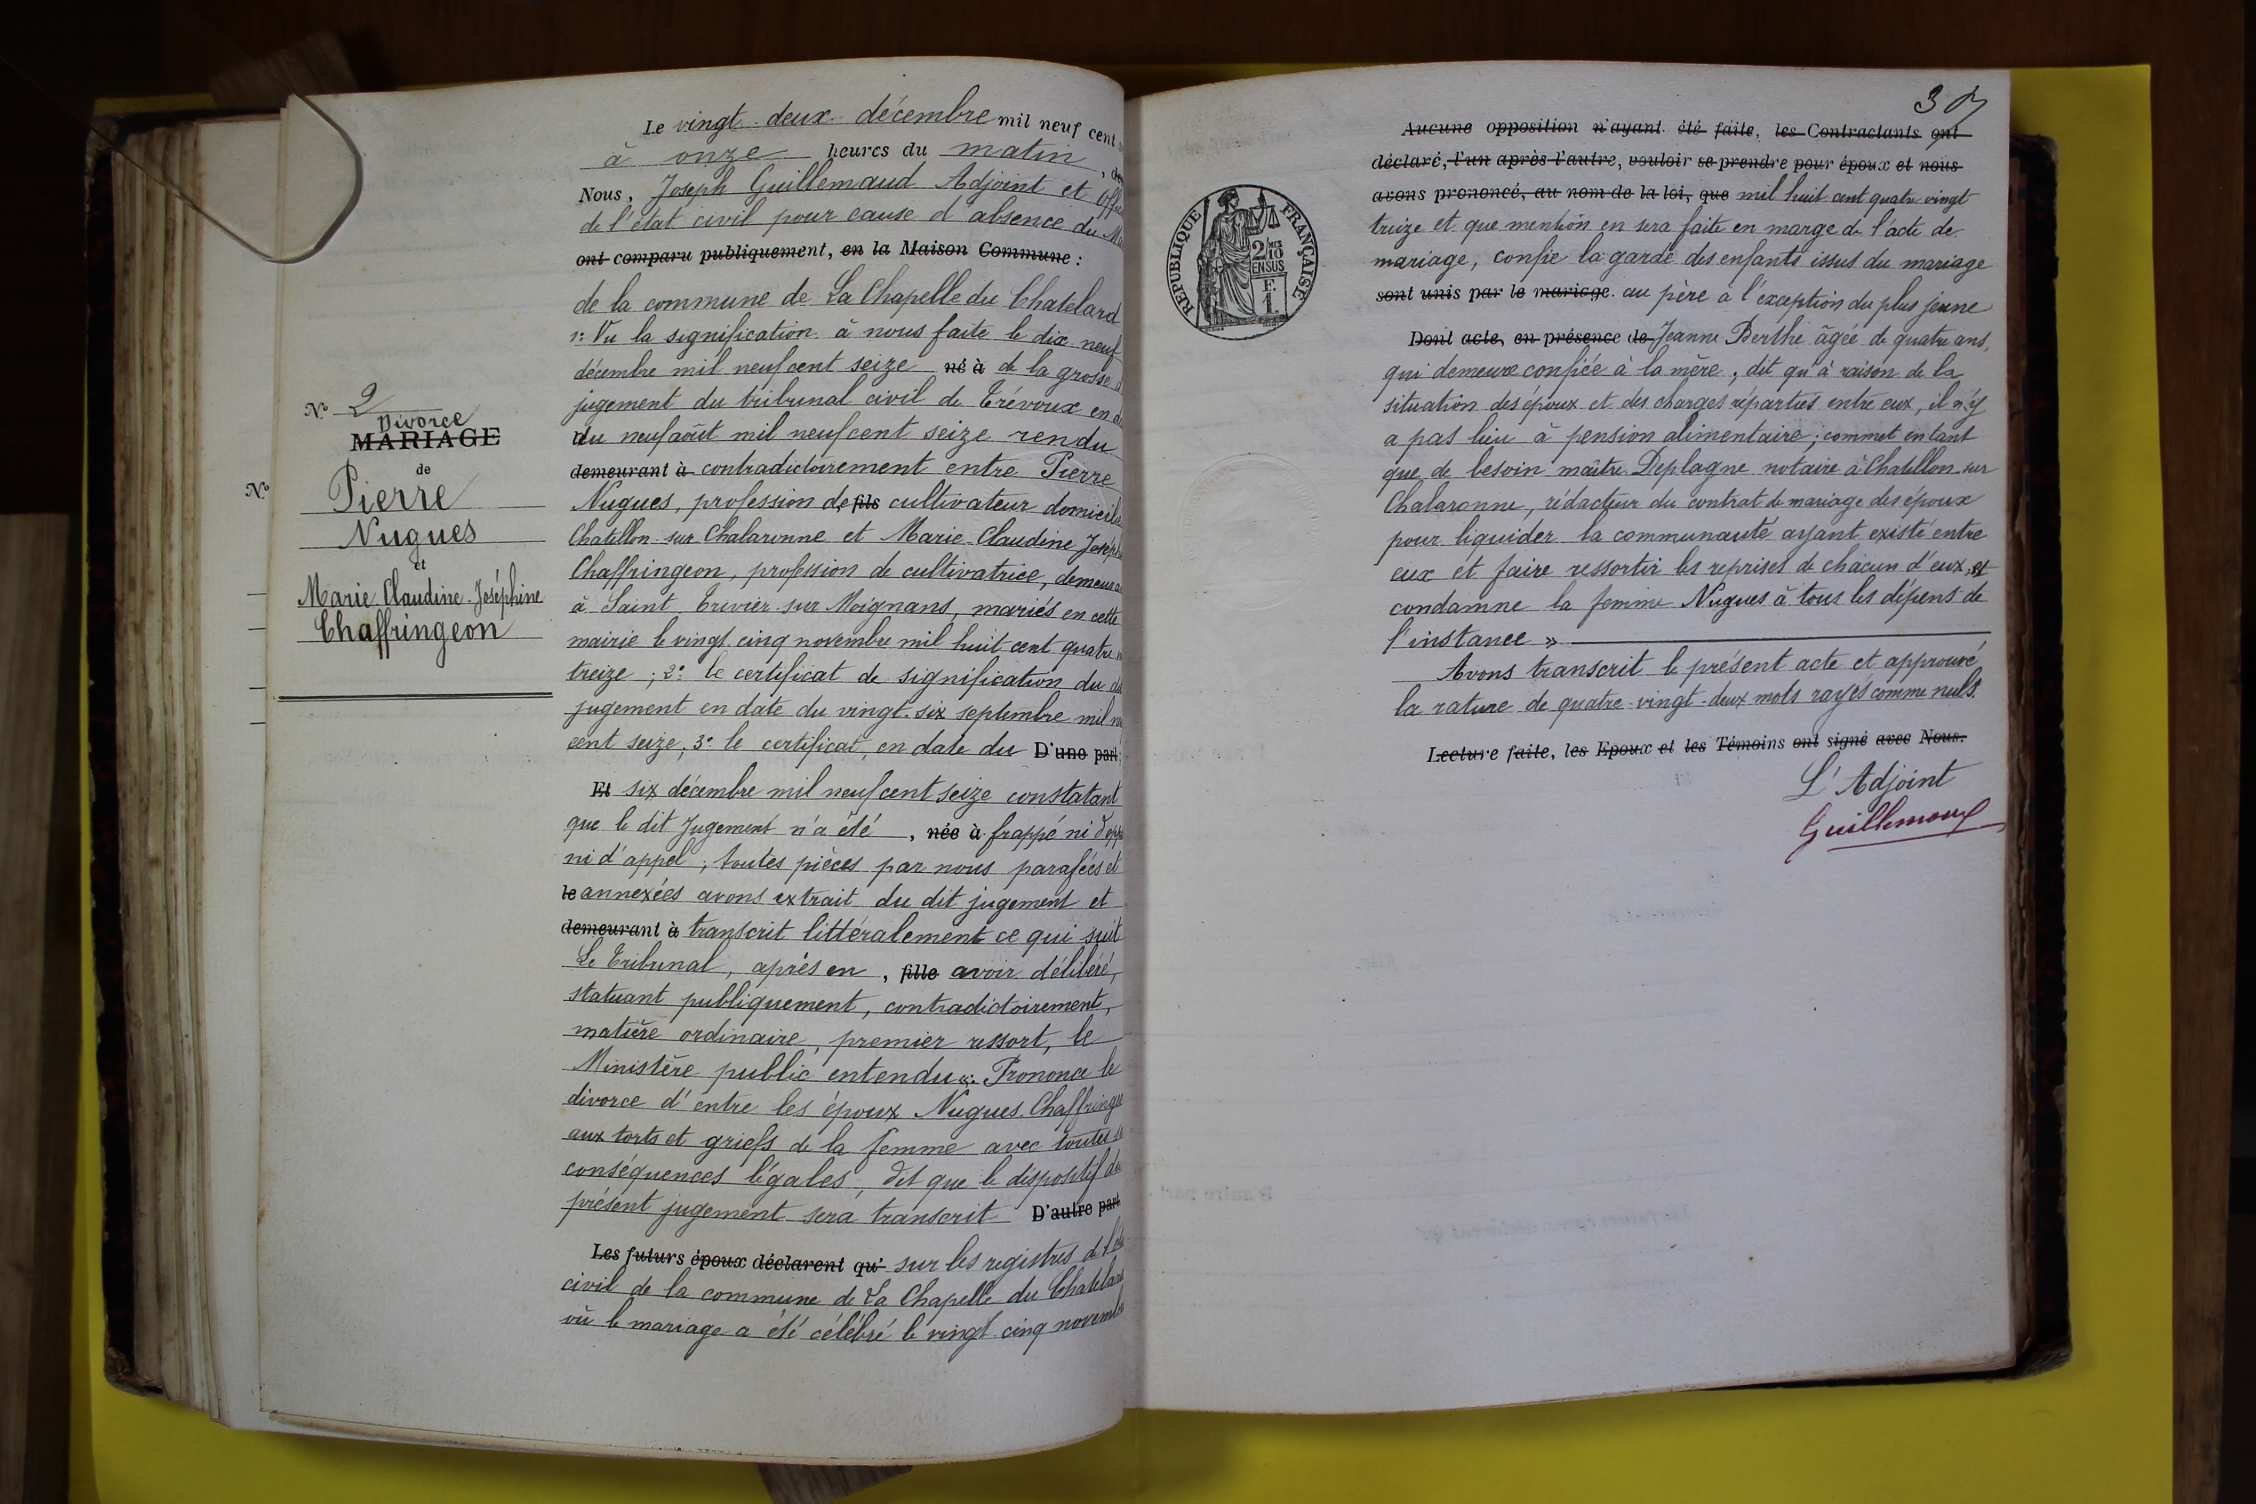 Le vingt-deux décembre mil neuf cent
à onze heures du matin,
Nous, Joseph Guillemaud Adjoint et
de l'état civil pour cause d'absence du
ont comparu publiquement, en la Maison Commune :
de la commune de La Chapelle du Chatelard
1º Vu la signification à nous faite le dix neuf
décembre mil neuf cent seize né à de la grosse
jugement du tribunal civil de Trévoux en
du neuf août mil neuf cent seize rendu
demeurant à contradictoirement entre Pierre
Nugues, profession de fils cultivateur
Chatillon-sur-Chalaronne et Marie-Claudine
Chaffringeon, profession de cultivatrice,
à Saint Trivier sur Moignans, mariés en cette
mairie le vingt cinq novembre mil huit cent quatre
treize ; 2º le certificat de signification du
jugement en date du vingt-six septembre mil
cent seize ; 3º le certificat, en date du D'une part
Et six décembre mil neuf cent seize constatant
que le dit Jugement n'a été , née à frappé ni
ni d'appel ; toutes pièces par nous parafées et
le annexées avons extrait du dit jugement et
demeurant à transcrit littéralement ce qui suit
Le Tribunal, après en , fille avoir délibéré,
statuant publiquement, contradictoirement,
matière ordinaire, premier ressort, le
Ministère public entendu « : Prononce le
divorce d'entre les époux Nugues
aux torts et griefs de la femme avec toutes
conséquences légales ; dit que le dispositif du
présent jugement sera transcrit D'autre part
Les futurs époux déclarent qu' sur les registres de
civil de la commune de La Chapelle du
où le mariage a été célébré le vingt cinq
Nº 2
Divorce
MARIAGE
de
Pierre
Nugues
et
Marie Claudine Joséphine
Chaffringeon
Nº
RÉPUBLIQUE FRANÇAISE
2/10
EN SUS
F.
1
Aucune opposition n'ayant été faite, les Contractants ont
déclaré, l'un après l'autre, vouloir se prendre pour époux et nous
avons prononcé, au nom de la loi, que mil huit cent quatre vingt
treize et que mention en sera faite en marge de l'acte de
mariage, confie la garde des enfants issus du mariage
sont unis par le mariage. au père à l'exception du plus jeune
Dont acte, en présence de Jeanne Berthe âgée de quatre ans,
qui demeure confiée à la mère ; dit qu'à raison de la
situation des époux et des charges réparties entre eux, il n'y
a pas lieu à pension alimentaire ; commet en tant
que de besoin maître Deplagne notaire à Chatillon sur
Chalaronne, rédacteur du contrat de mariage des époux
pour liquider la communauté ayant existé entre
eux et faire ressortir les reprises de chacun d'eux, et
condamne la femme Nugues à tous les dépens de
l'instance »
Avons transcrit le présent acte et approuvé
la rature de quatre-vingt-deux mots rayés comme nuls.
Lecture faite, les Epoux et les Témoins ont signé avec Nous.
L'Adjoint
Guillemaud